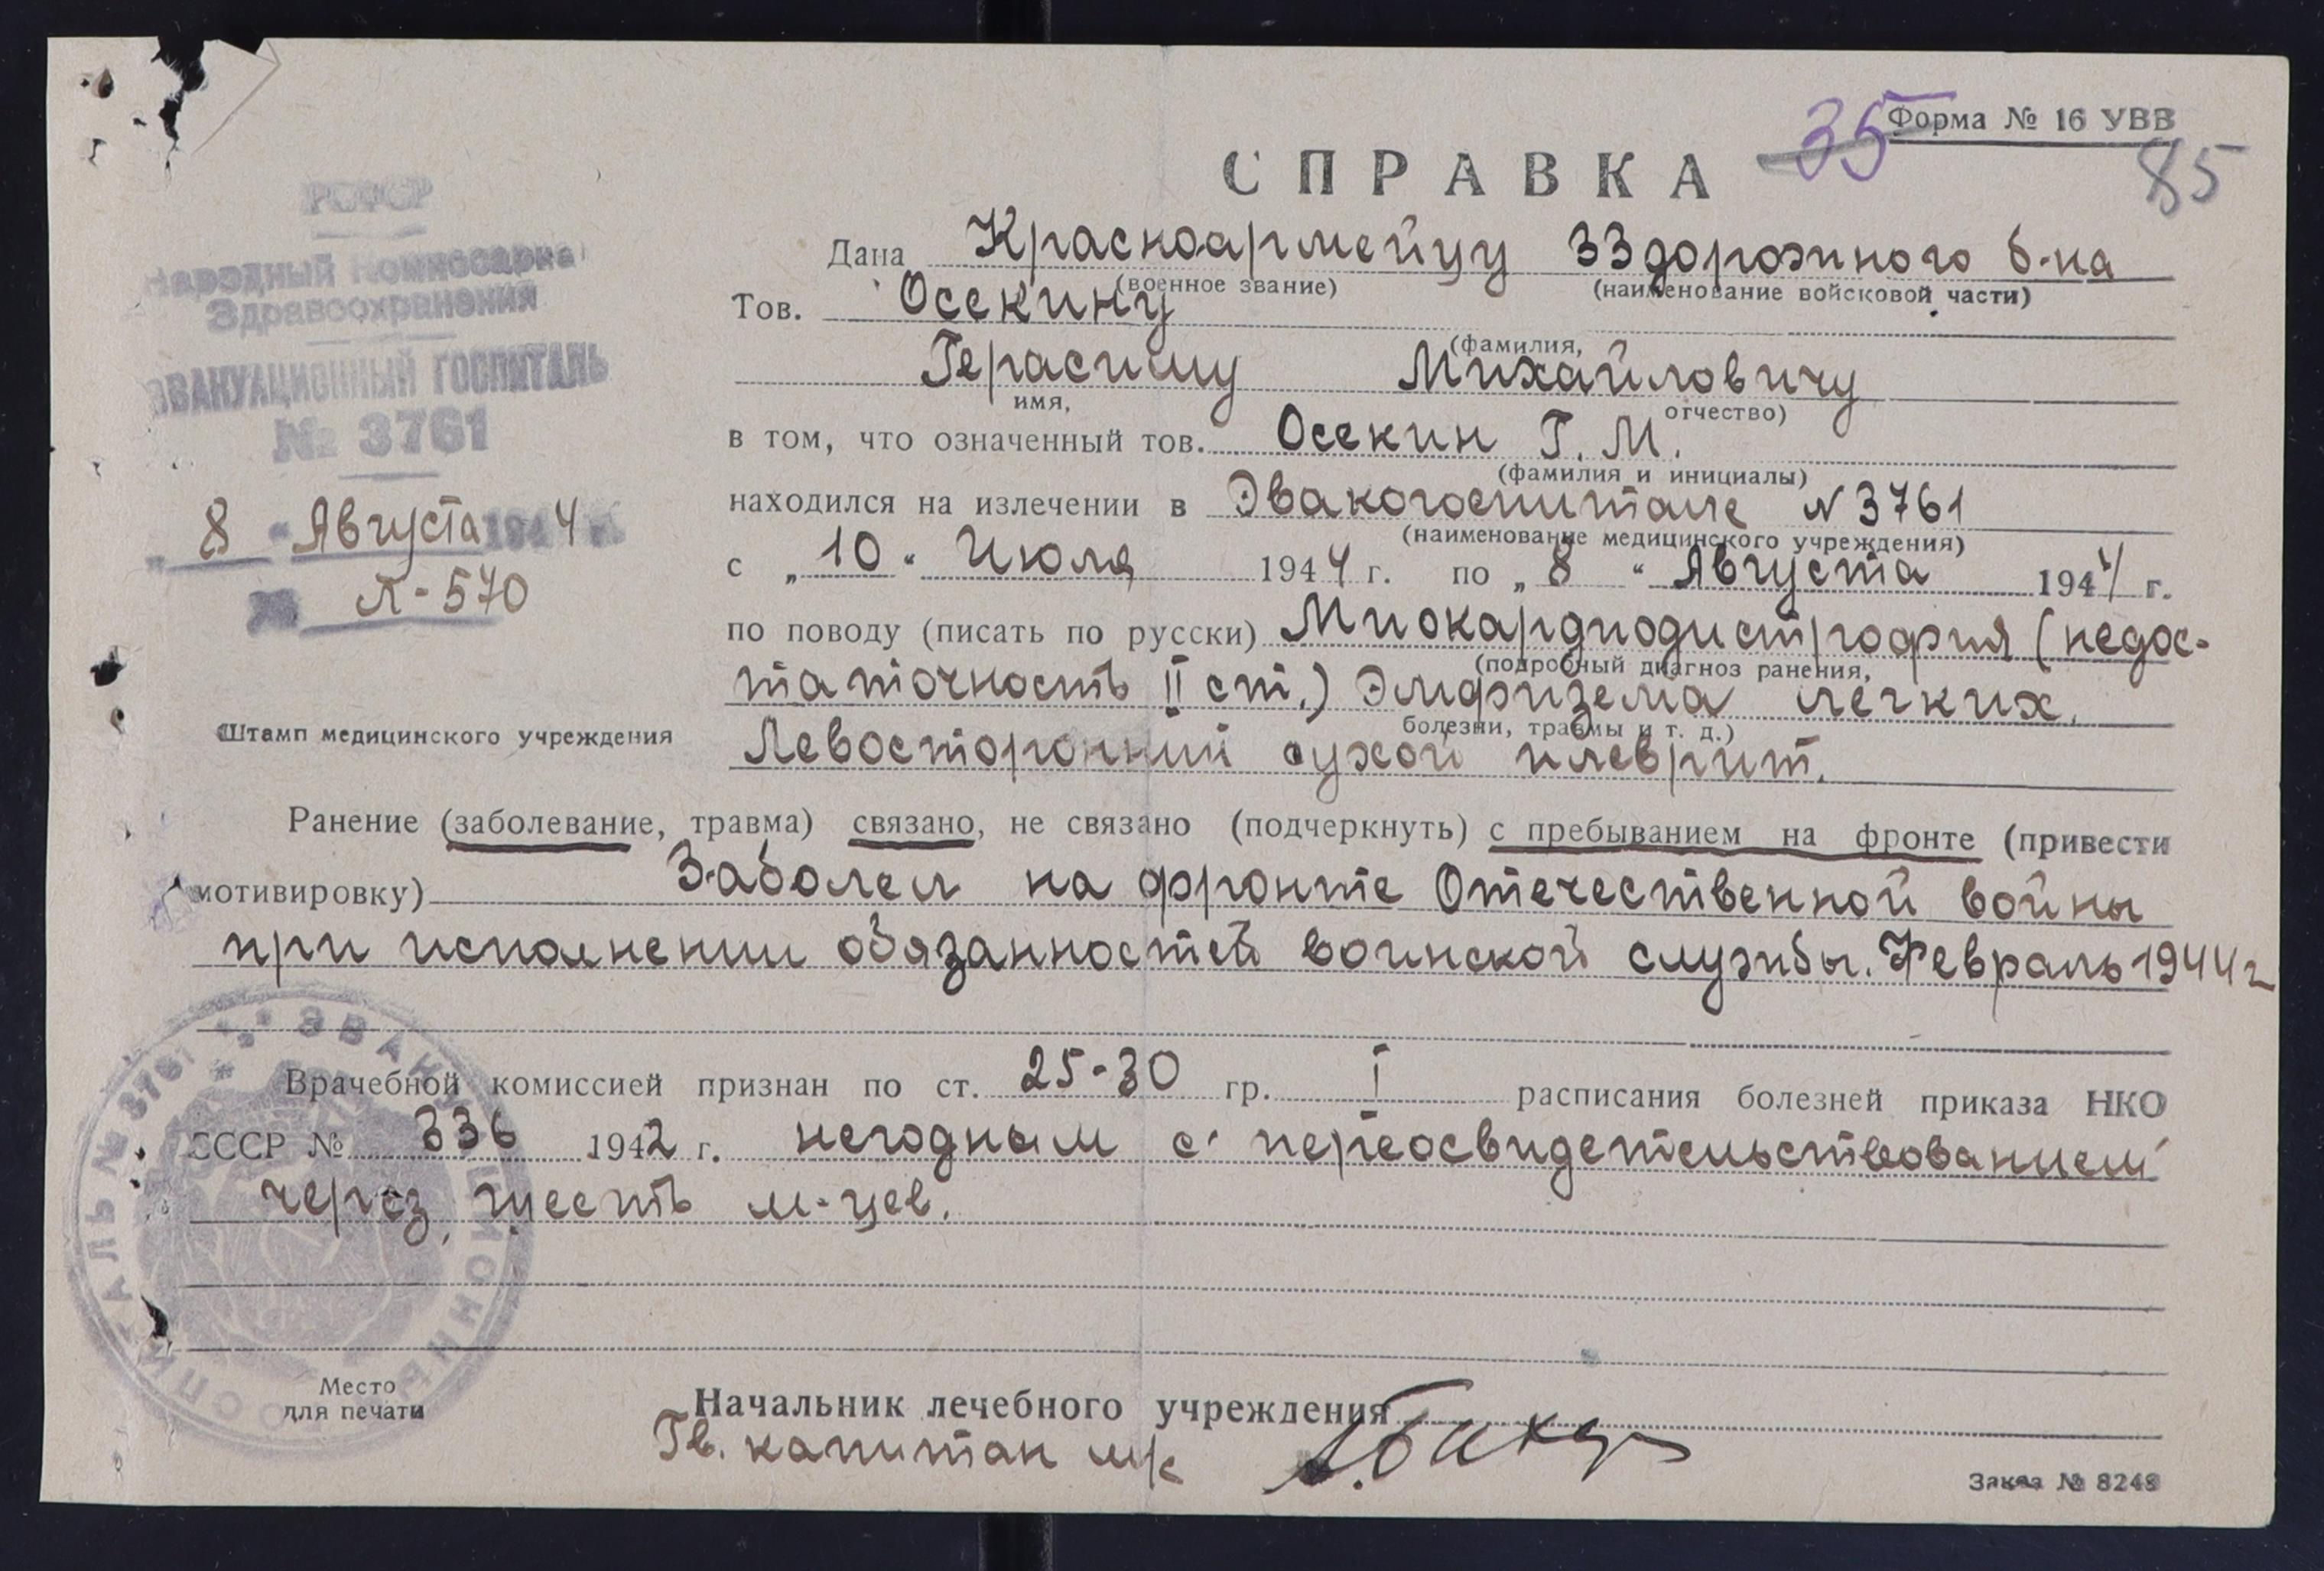 35
Форма № 16 УВВ
85
СПРАВКА
РСФСР
Народный Комиссариат
Здравоохранения
ЭВАКУАЦИОННЫЙ ГОСПИТАЛЬ
№ 3761
„ 8 “ Августа 1944 г.
№ Л-570
Штамп медицинского учреждения
Дана Красноармейцу 33 дорожного б-на
(военное звание) (наименование войсковой части)
Тов. Осекину
(фамилия,
Герасиму Михайловичу
имя, отчество)
в том, что означенный тов. Осекин Г. М.
(фамилия и инициалы)
находился на излечении в Эвакогоспитале № 3761
(наименование медицинского учреждения)
с „ 10 “ Июля 1944 г. по „ 8 “ Августа 1944 г.
по поводу (писать по русски) Миокардиодистрофия (недос-
(подробный диагноз ранения,
таточность II ст.) Эмфизема легких.
болезни, травмы и т. д.)
Левосторонний сухой плеврит.
Ранение (заболевание, травма) связано, не связано (подчеркнуть) с пребыванием на фронте (привести
мотивировку) Заболел на фронте Отечественной войны
при исполнении обязанностей воинской службы. Февраль 1944 г
Врачебной комиссией признан по ст. 25-30 гр. I расписания болезней приказа НКО
СССР № 336 1942 г. негодным с переосвидетельствованием
через шесть м-цев.
ЭВАКУАЦИОННЫЙ ГОСПИТАЛЬ № 3761
Место
для печати
Начальник лечебного учреждения
Гв. капитан м/с
Заказ № 8248